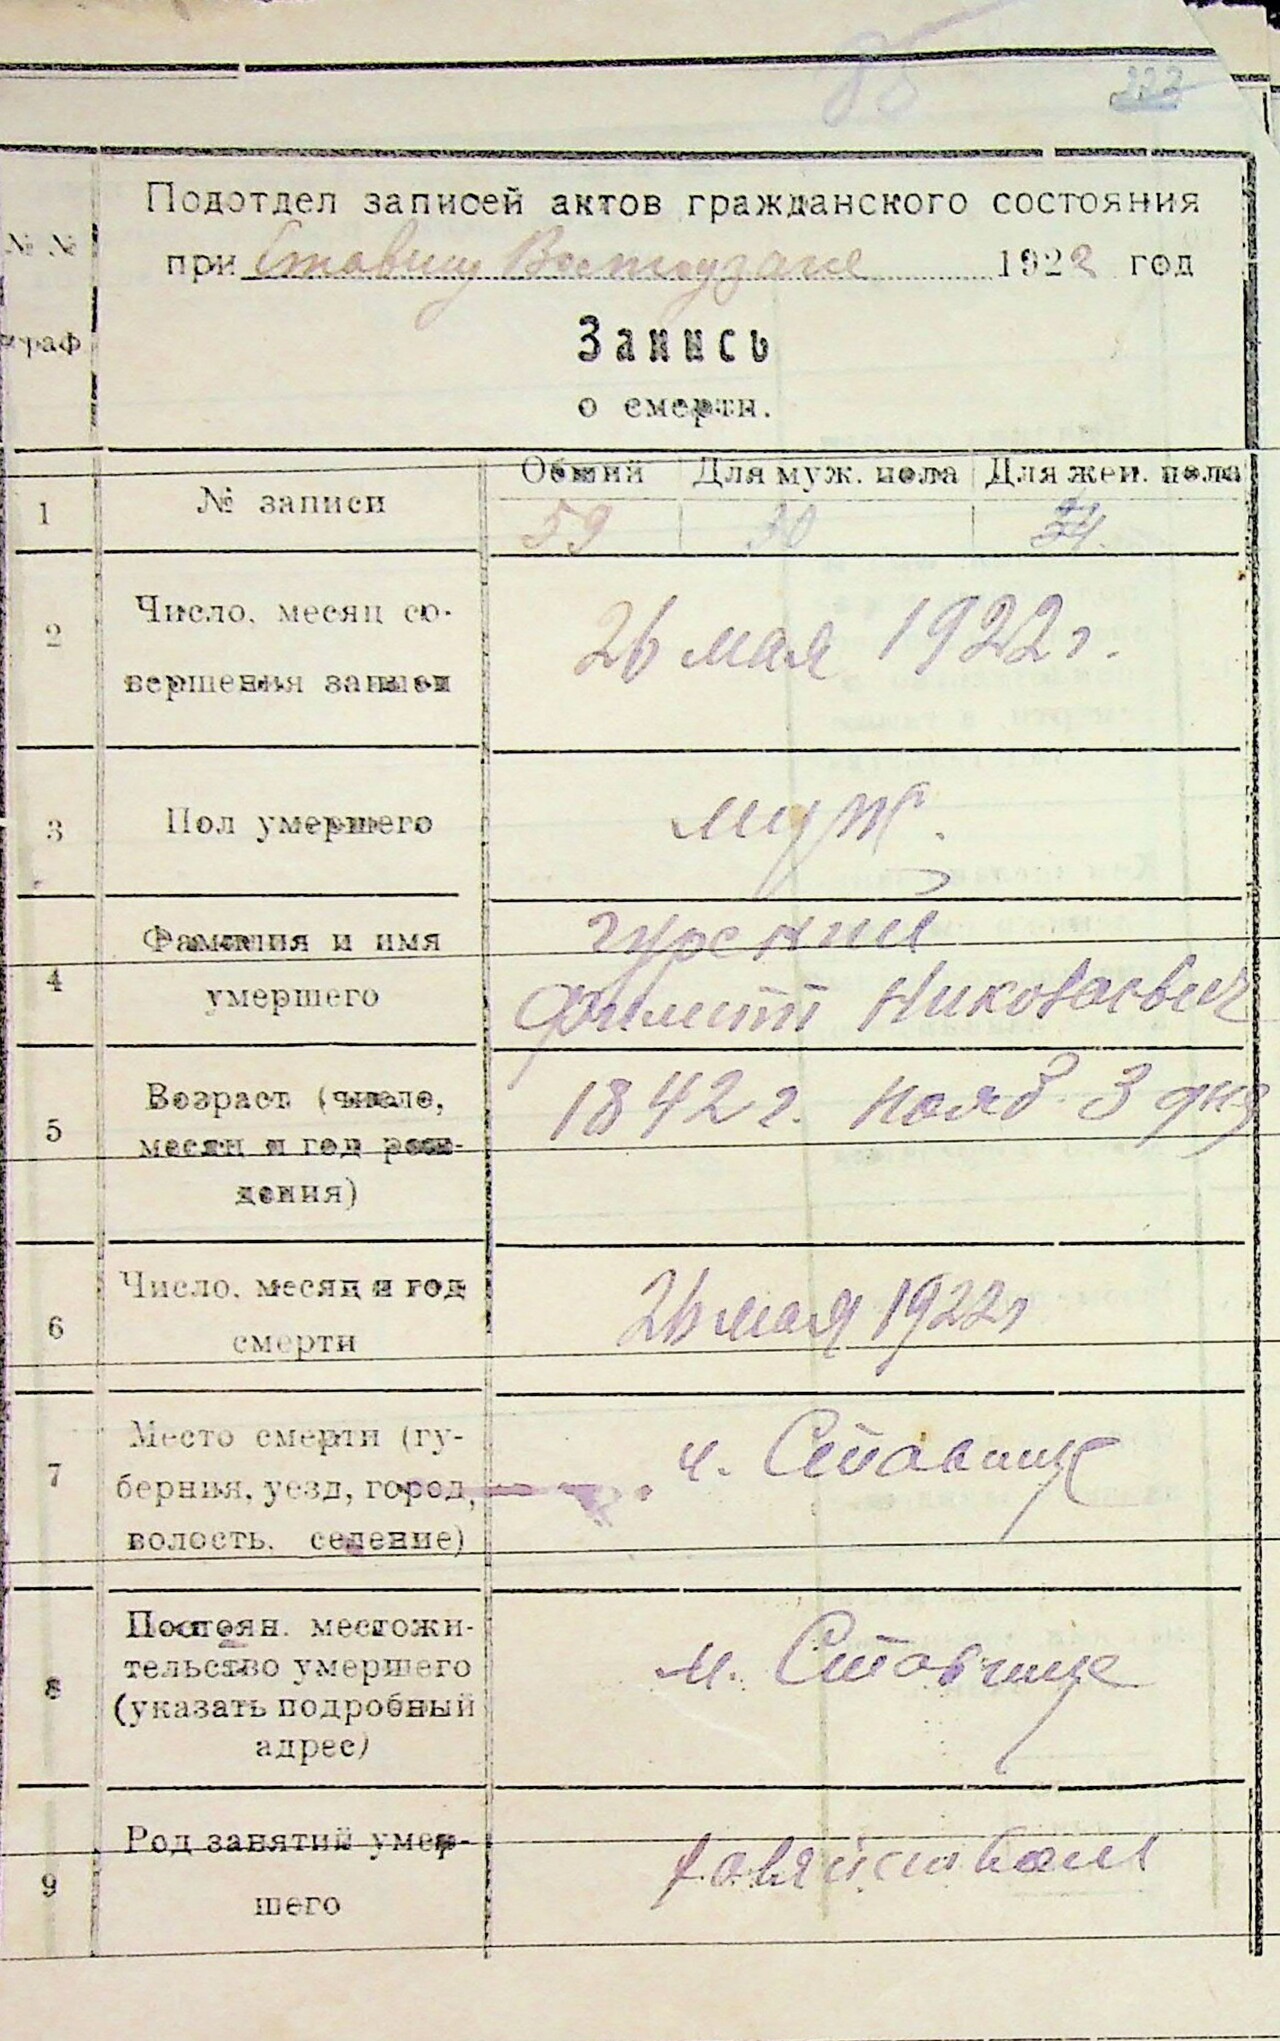 85
222
Подотдел записей актов гражданского состояния
№ № граф
при 1922 год
Запись
о смерти.
Общий Для муж. пола Для жен. пола
1 № записи 59 30
2 Число, месяц со-
вершения записи 26 мая 1922 г.
3 Пол умершего муж.
4 Фамилия и имя
умершего Николаевич
5 Возраст (число,
месяц и год рож-
дения) 1842 г. 3 дня
6 Число, месяц и год
смерти 26 мая 1922 г
7 Место смерти (гу-
берния, уезд, город,
волость, селение) м. Ставище
8 Постоян. местожи-
тельство умершего
(указать подробный
адрес) м. Ставище
9 Род занятий умер-
шего